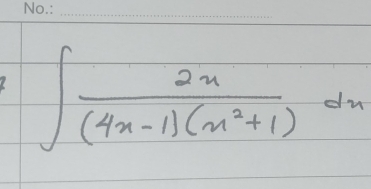 No.:
∫ 2x / (4x-1)(x²+1) dx